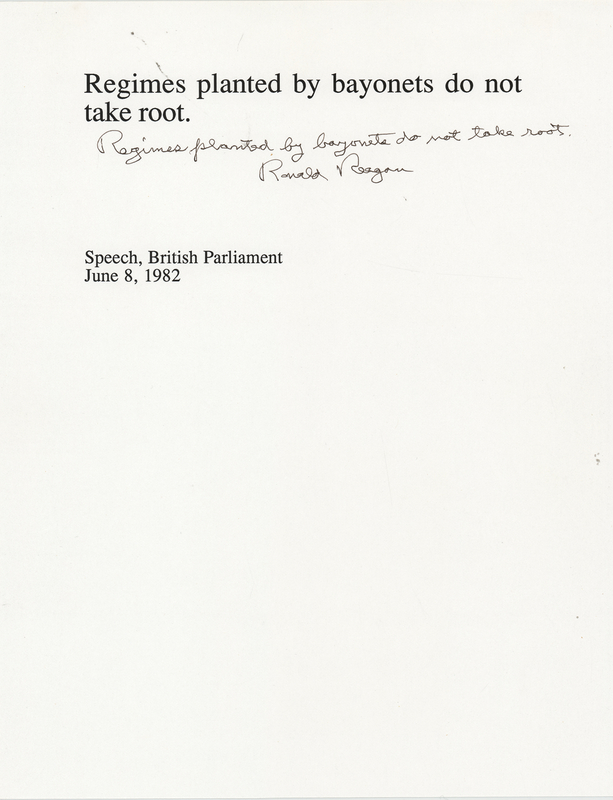 Regimes planted by bayonets do not
take root.
Regimes planted by bayonets do not take root.
Ronald Reagan
Speech, British Parliament
June 8, 1982